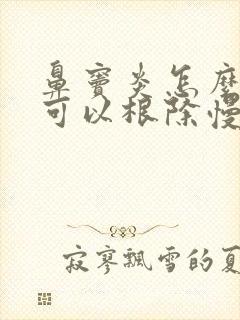 鼻窦炎怎麼
可以根除慢
寂寥飘雪的夏